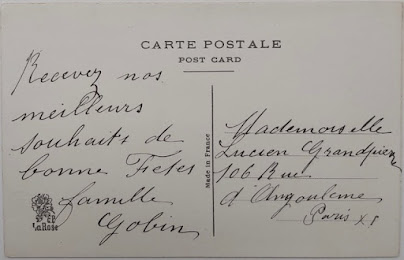 CARTE POSTALE
POST CARD
Recevez nos
meilleurs
souhaits de
bonne Fetes
famille
Gobin
Made in France
Mademoiselle
Lucien Grandpierre
106 Rue
d'Angouleme
Paris XI
La Rose